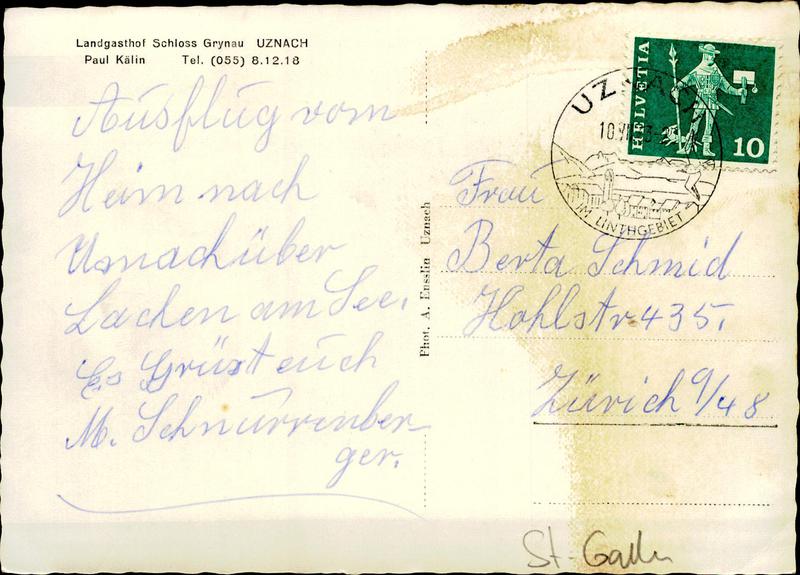 Landgasthof Schloss Grynau UZNACH
Paul Kälin Tel. (055) 8.12.18
Ausflug vom
Heim nach
Usnach über
Lachen am See.
Es Grüst euch
M. Schnurrenber-
ger.
Phot. A. Ensslin Uznach
HELVETIA
10
UZNACH
IM LINTHGEBIET
Frau
Berta Schmid
Hohlstr 435.
Zürich 9/48
St-Gallen